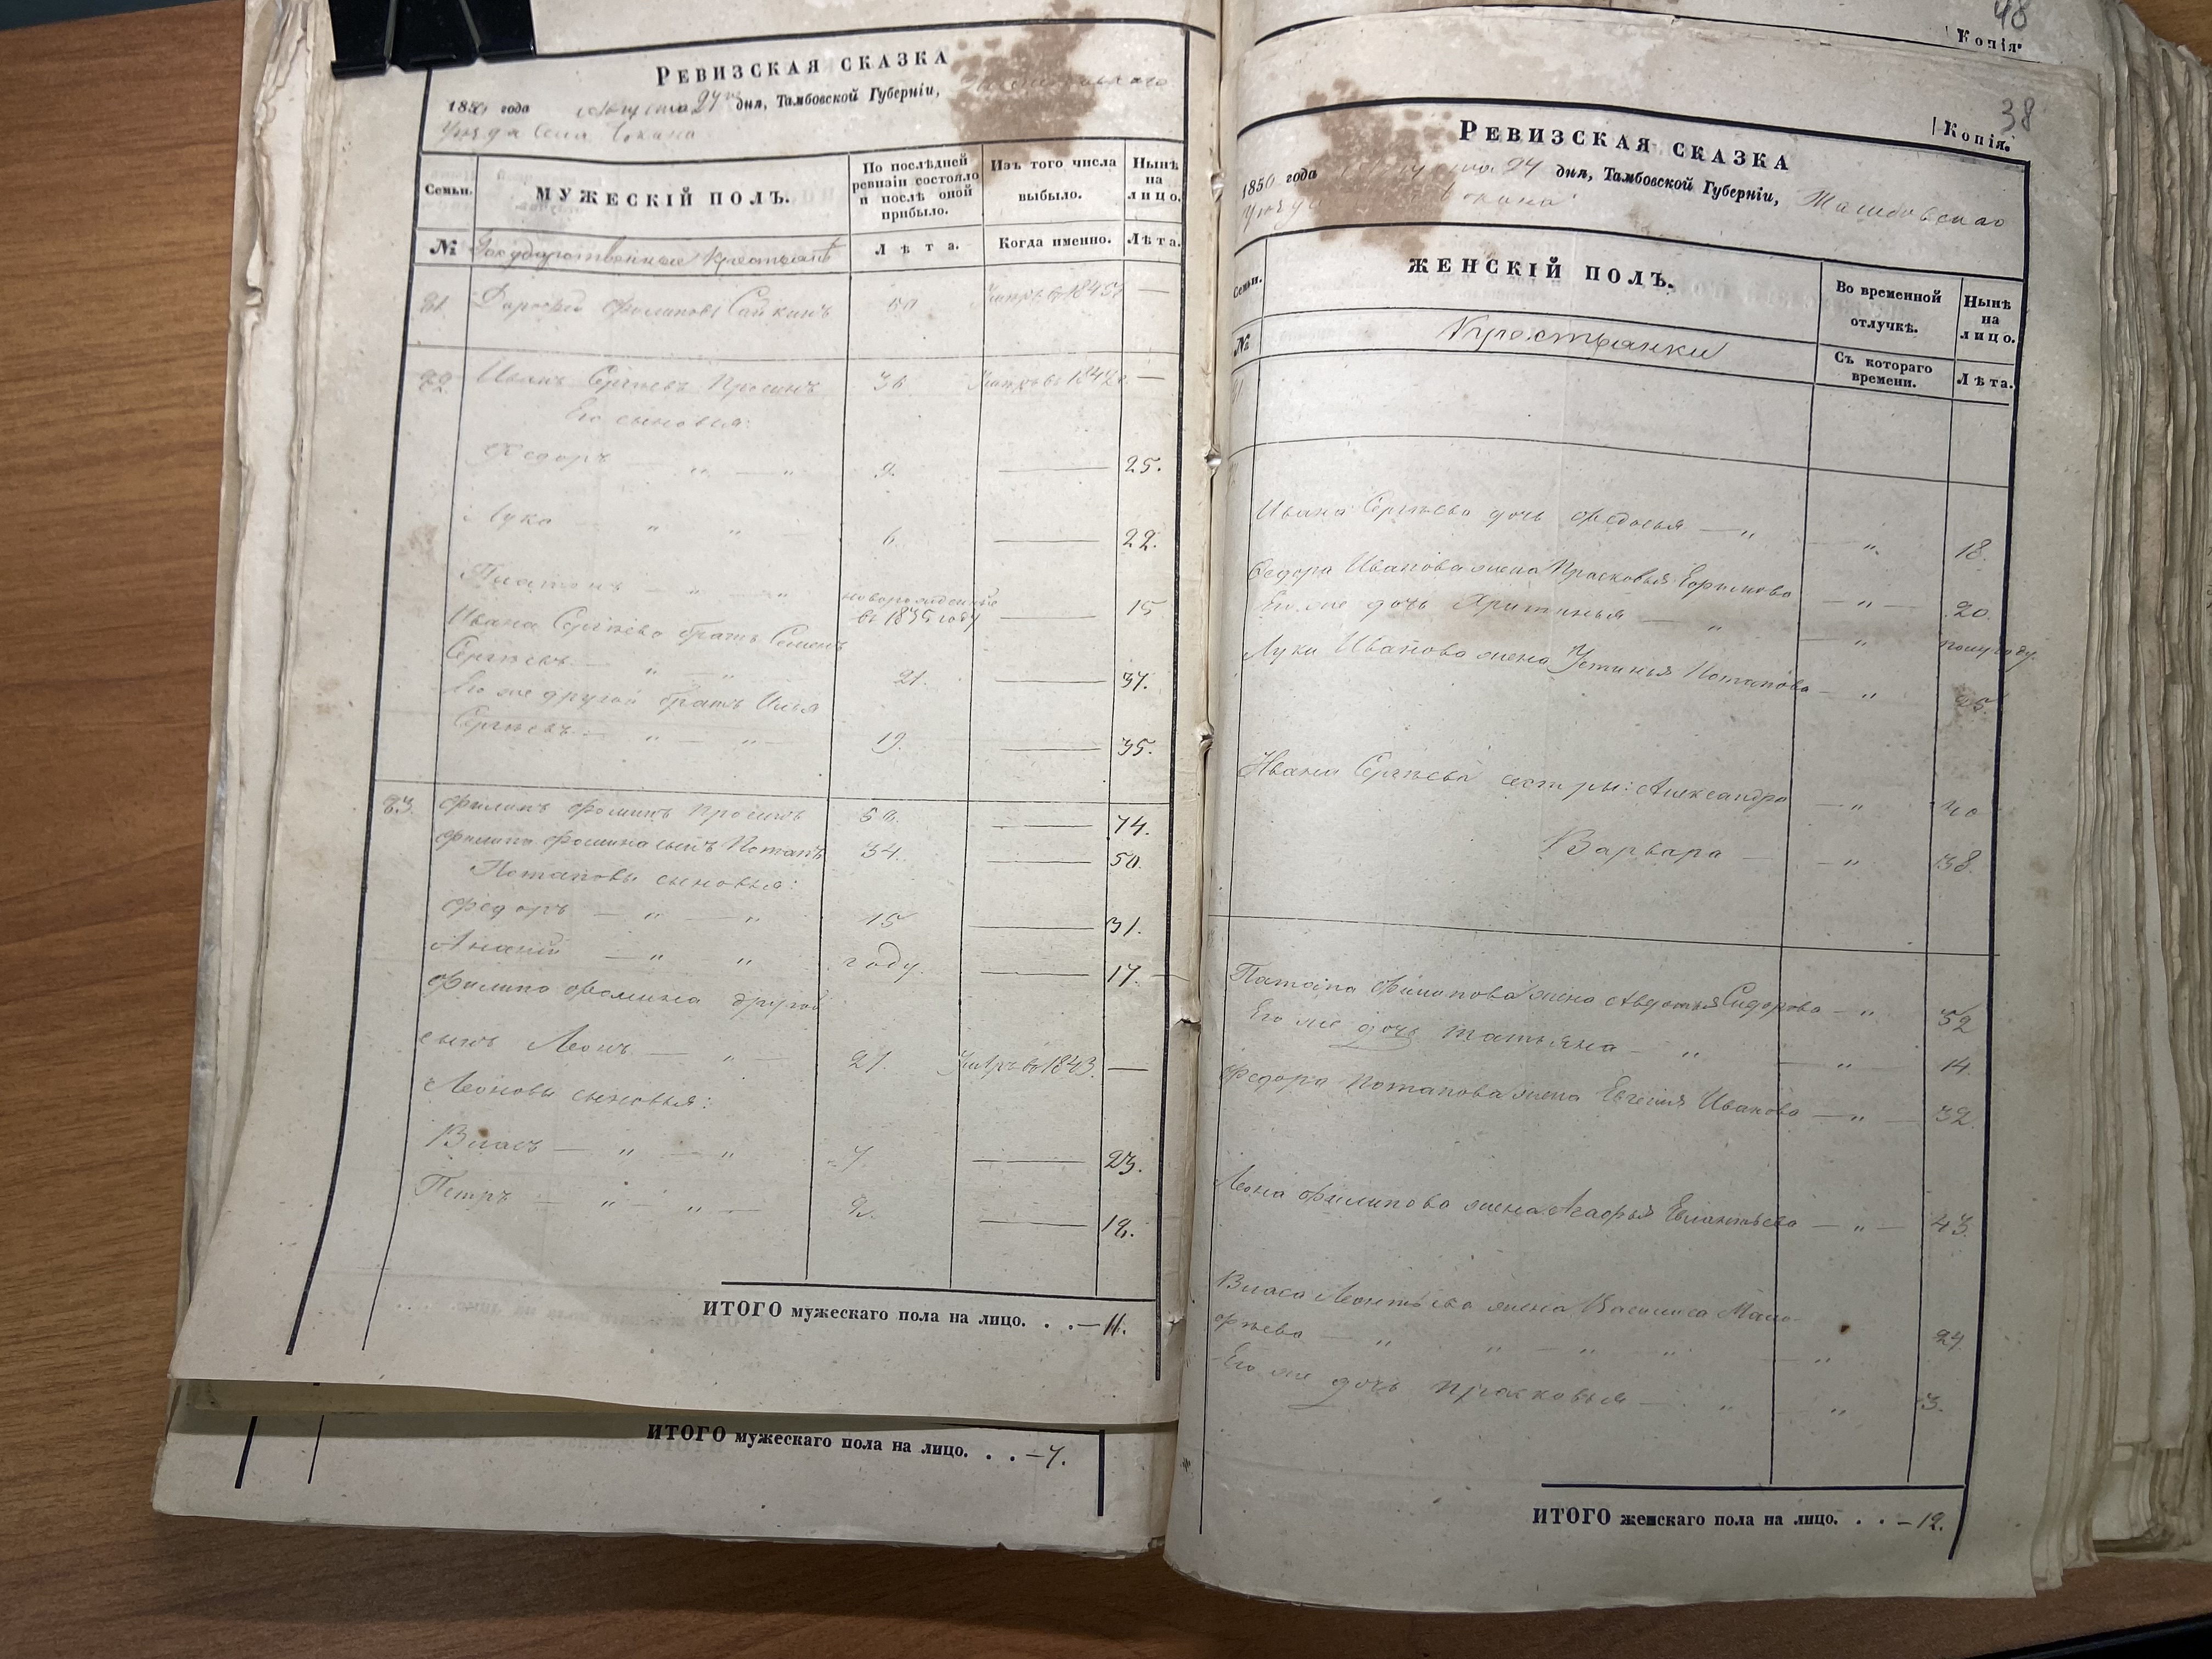 РЕВИЗСКАЯ СКАЗКА
1850 года Августа 24 дня, Тамбовской Губерніи,
Уезда Села
Семьи.
МУЖЕСКІЙ ПОЛЪ.
По послѣдней ревизіи состояло и послѣ оной прибыло.
Изъ того числа выбыло.
Нынѣ на лицо.
№ Государственные Крестьяне
Лѣта.
Когда именно.
Лѣта.
81. Сайкинъ 50 —
82. Иванъ Сергѣевъ Просинъ 36 —
Его сыновья:
Федоръ — „ — „ 9. — 25.
Лука „ „ — 6. — 22.
Платонъ — „ — „ новорожденный въ 1835 году — 15
Ивана Сергѣева братъ Семенъ
Сергѣевъ — „ — „ 21. — 37.
Его же другой братъ Илья
Сергѣевъ — „ — „ — 19. — 35.
83. Филипъ Фоминъ Просинъ 58. — 74.
Филипа Фомина сынъ Потапъ 34. — 50.
Потаповы сыновья:
Федоръ — „ — „ 15 — 31.
Ананий — „ „ году. — 17.
Филипа Фомина другой
сынъ Леонъ — „ — 27. Умръ въ 1843. —
Леоновы сыновья:
Власъ — „ — „ 7 — 23.
Петръ — „ — „ — 2. — 18.
ИТОГО мужескаго пола на лицо. . . — 11.
ИТОГО мужескаго пола на лицо. . . — 7.
48
Копія.
38
Копія.
РЕВИЗСКАЯ СКАЗКА
1850 года Августа 24 дня, Тамбовской Губерніи, Тамбовскаго
Семьи.
ЖЕНСКІЙ ПОЛЪ.
Во временной отлучкѣ.
Нынѣ на лицо.
№
Крестьянки
Съ котораго времени.
Лѣта.
Ивана Сергѣева дочь Федосья — „ — „ 18.
Федора Иванова жена Прасковья Ефимова — „ — 20.
Его же дочь — „ — „ полугоду
Луки Иванова жена Устинья Потапова — „ 25
Ивана Сергѣева сестры: Александра — „ 40
Варвара — — „ 38.
Потапа Филипова жена Авдотья Сидорова — „ 52
Его же дочь Татьяна — „ — „ 14
Федора Потапова жена Евгения Иванова — „ — 32.
Леона Филипова жена — „ — 43.
Власа Леонтьева жена Василиса
— „ „ — „ „ — „ 24
Его же дочь Прасковья — „ „ 3.
ИТОГО женскаго пола на лицо. . . — 12.